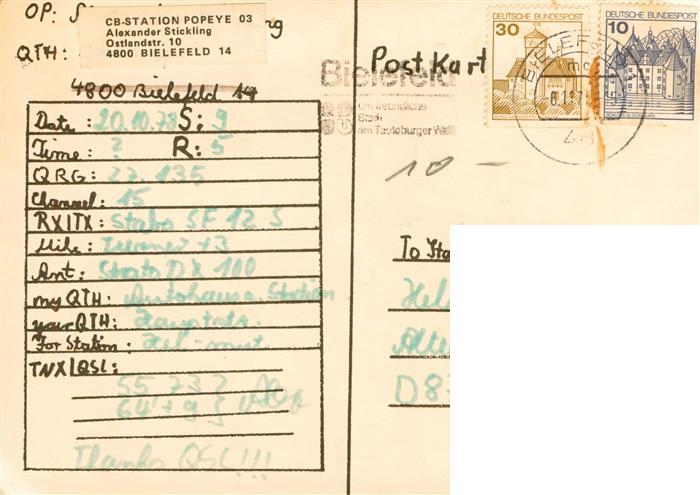 OP:
CB-STATION POPEYE 03
Alexander Stickling
Ostlandstr. 10
4800 BIELEFELD 14
QTH:
4800 Bielefeld 14
Date: 20.10.78 S: 9
Time: ? R: 5
QRG: 27.135
Channel: 15
RX/TX: Stabo SF 12 S
Mike: Turner +3
Ant: DX 100
my QTH: Station
your QTH: Hauptstr.
For Station: Hel-mut
TNX/QSL:
55, 73
64 + 9
Thanks QSL!!!
Post Kart
Bielefeld
Die freundliche
Stadt
am Teutoburger Wal
30
DEUTSCHE BUNDESPOST
10
DEUTSCHE BUNDESPOST
BIELEFELD
10 -
To Sta
Hel
D8